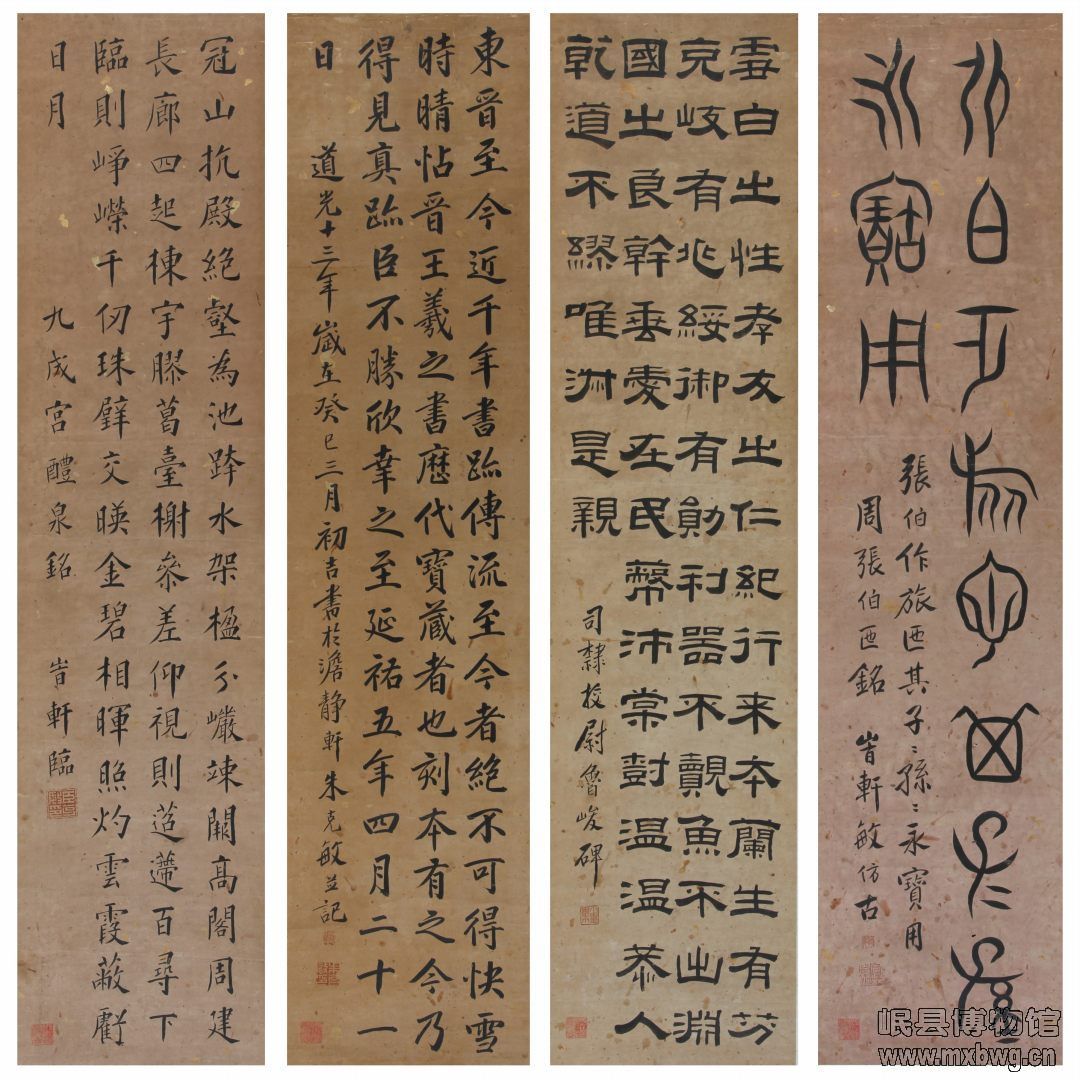 張伯作旅匜其子〻孫〻
永寶用
張伯作旅匜其子〻孫〻永寶用
周張伯匜銘 旹軒敏仿古
雲白之性孝友之仁紀行來本蘭生有芬
克岐有兆綏御有勛利器不覿魚不出淵
國之良幹垂愛在民蔽沛棠樹溫溫恭人
乾道不繆唯淑是親
司隸校尉魯峻碑
東晉至今近千年書跡傳流至今者絕不可得快雪
時晴帖晉王羲之書歷代寶藏者也刻本有之今乃
得見真跡臣不勝欣幸之至延祐五年四月二十一
日
道光十三年歲在癸巳三月初吉書於澹靜軒朱克敏並記
冠山抗殿絕壑為池跨水架楹分巖竦闕高閣周建
長廊四起棟宇膠葛臺榭參差仰視則迢遰百尋下
臨則崢嶸千仞珠璧交暎金碧相暉照灼雲霞蔽虧
日月
九成宮醴泉銘 旹軒臨
岷县博物馆
www.mxbwg.cn